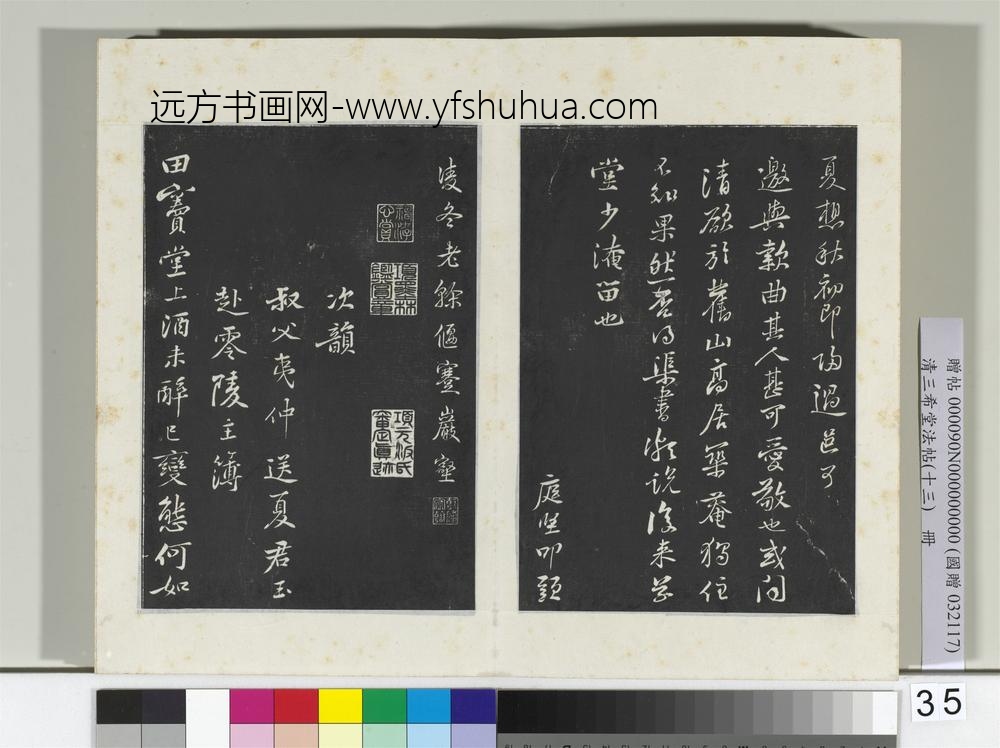 远方书画网-www.yfshuhua.com
夏想秋初即归过邑可
邀與款曲其人甚可愛敬也或问
清欲於舊山高居築菴獨住
不知果然否得渠書
堂少淹留也
庭坚叩頭
凌冬老幹偃蹇巖壑
項元汴氏審定真迹
次韻
叔父夷仲送夏君玉
赴零陵主簿
田竇堂上酒未醉已變態何如
贈帖 000090N000000000 (國贈 032117)
清三希堂法帖(十三) 冊
35